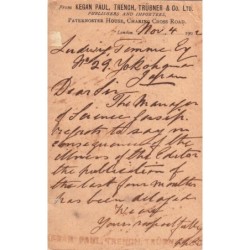 From KEGAN PAUL, TRENCH, TRÜBNER & CO. LTD.
PUBLISHERS AND IMPORTERS,
PATERNOSTER HOUSE, CHARING CROSS ROAD.
London Nov. 4 190
Ludwig Temme Esq
No 29. Yokohama
Japan
Dear Sir
The Manager
of Science Gossip
regrets to say in
consequence of the
illness of the Editor
the publication of
the last four months
has been delayed
Yours respectfully
KEGAN PAUL, TRENCH, TRÜBNER